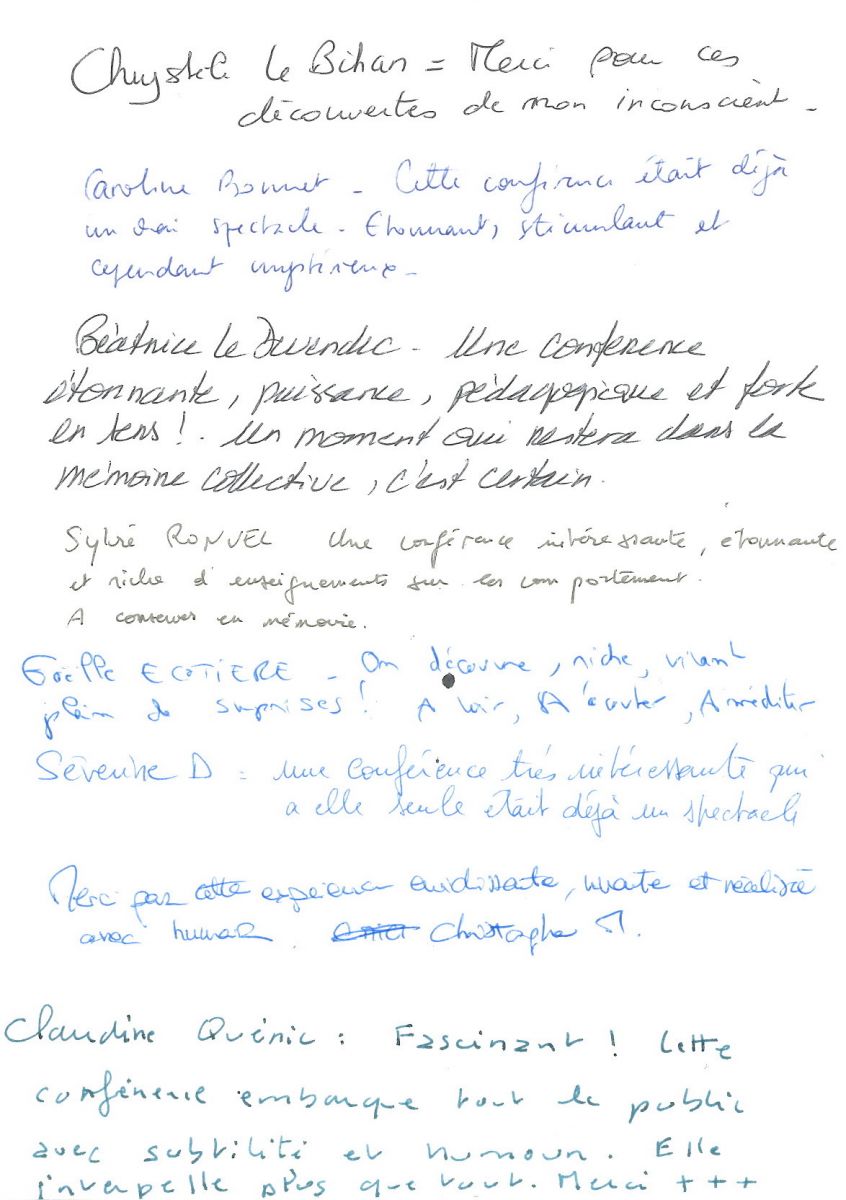 Chrystèle Le Bihan = Merci pour ces
découvertes de mon inconscient -
Caroline Bonnet - Cette conférence était déjà
un vrai spectacle - Etonnant, stimulant et
cependant mystérieux -
Béatrice Le - Une conférence
étonnante, puissance, pédagogique et forte
en sens ! . Un moment qui restera dans la
mémoire collective, c'est certain.
une conférence intéressante, étonnante
et riche d'enseignements sur les comportement.
A conserver en mémoire.
ECOTIERE - On découvre, riche, vivant
plein de surprises ! A voir, A écouter, A méditer
Séverine D : une conférence très intéressante qui
a elle seule était déjà un spectacle
Merci par cette expérience, et réalisée
avec humour. Christophe
Claudine Quénic : Fascinant ! Cette
conférence embarque tout le public
avec subtilité et humour. Elle
interpelle plus que tout. Merci + + +